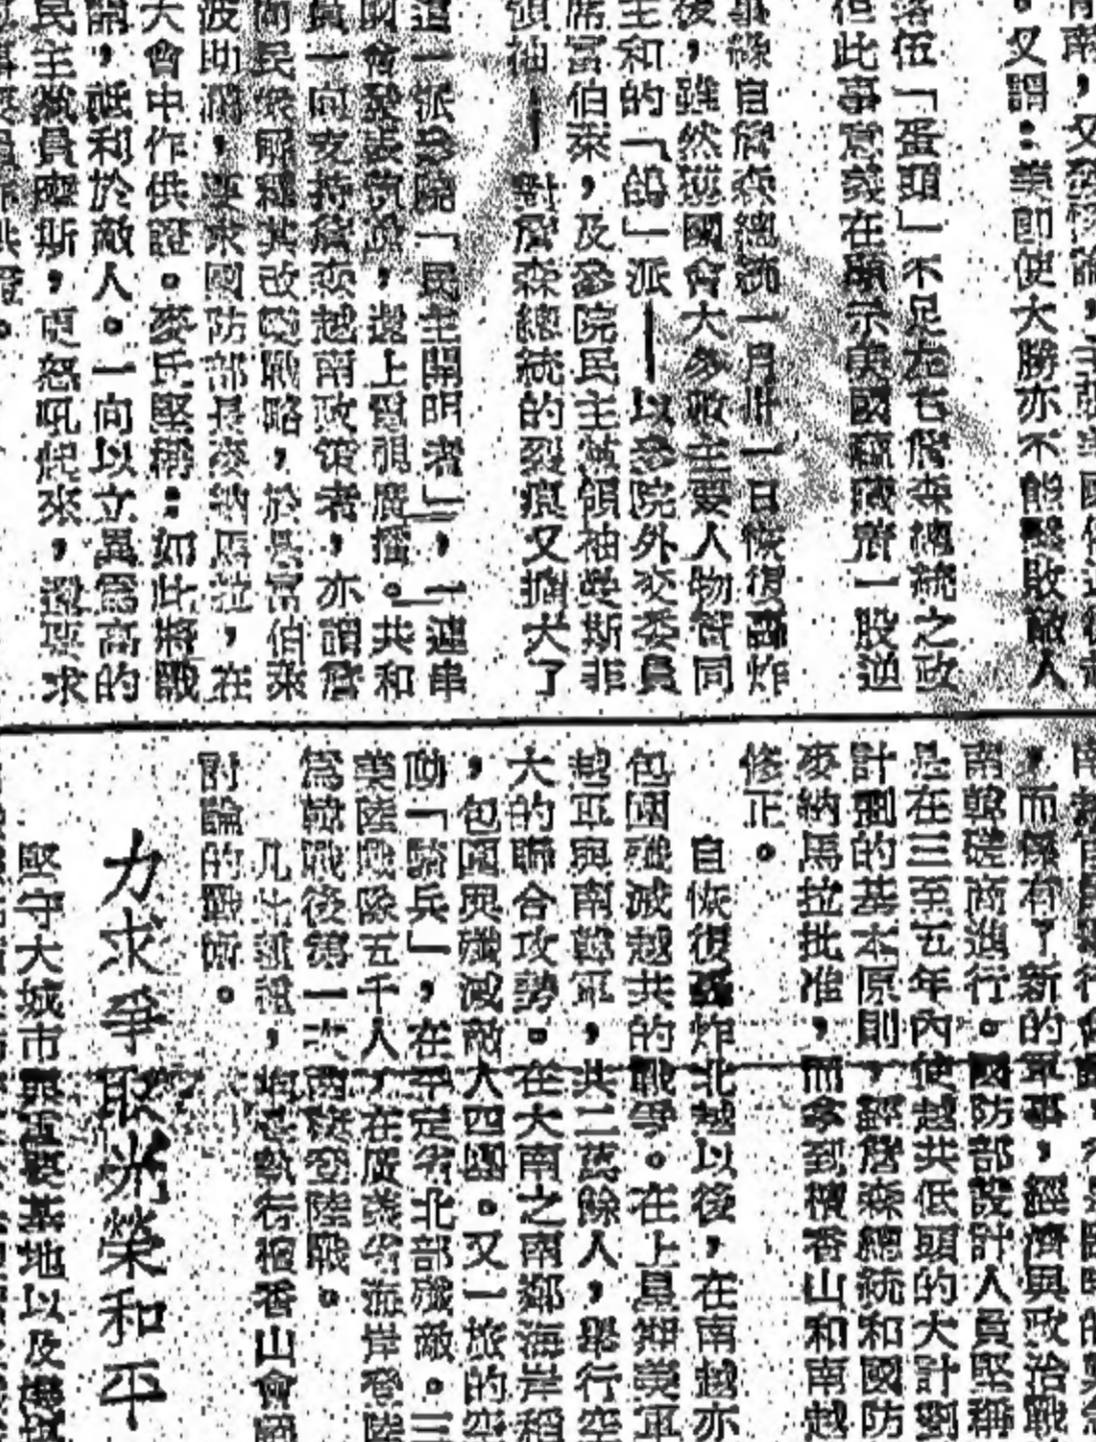 南，又發
。又謂：美即使大勝亦不能擊敗敵人
落伍「蛋頭」不足左右詹森總統之政
但此事意義在顯示美國蘊藏着一股逆
緣自詹森總統一月卅一日恢復轟炸
後，雖然從國會大多數主要人物皆同
主和的「鴿」派——以參院外交委員
席富伯萊，及參院民主黨領袖曼斯非
領袖——對詹森總統的裂痕又擴大了
這一派參院「民主開明者」，一連串
國會發表演說，還上電視廣播。共和
員一向支持詹森越南政策者，亦謂詹
向民眾解釋其改變戰略，於是富伯萊
波助瀾，要求國防部長麥納馬拉，在
大會中作供證。麥氏堅稱：如此將戰
開，祗利於敵人。一向以立異爲高的
民主黨員摩斯，更怒吼起來，還要求
，而係有了新的軍事，經濟與政治戰
南韓磋商進行。國防部設計人員堅稱
是在三至五年內使越共低頭的大計劃
計劃的基本原則，經詹森總統和國防
麥納馬拉批准，而拿到檀香山和南越
修正。
自恢復轟炸北越以後，在南越亦
包圍殲滅越共的戰爭。在上星期美軍
越軍與南韓軍，共二萬餘人，舉行空
大的聯合攻勢。在大南之南鄉海岸稻
，包圍與殲滅敵人四團。又一旅的空
動「騎兵」，在平定省北部殲敵。三
美陸戰隊五千人，在廣義省海岸登陸
爲韓戰後第一次兩棲登陸戰。
凡此種種，均是執行檀香山會議
討論的戰術。
力求爭取光榮和平
堅守大城市與重要基地以及機場